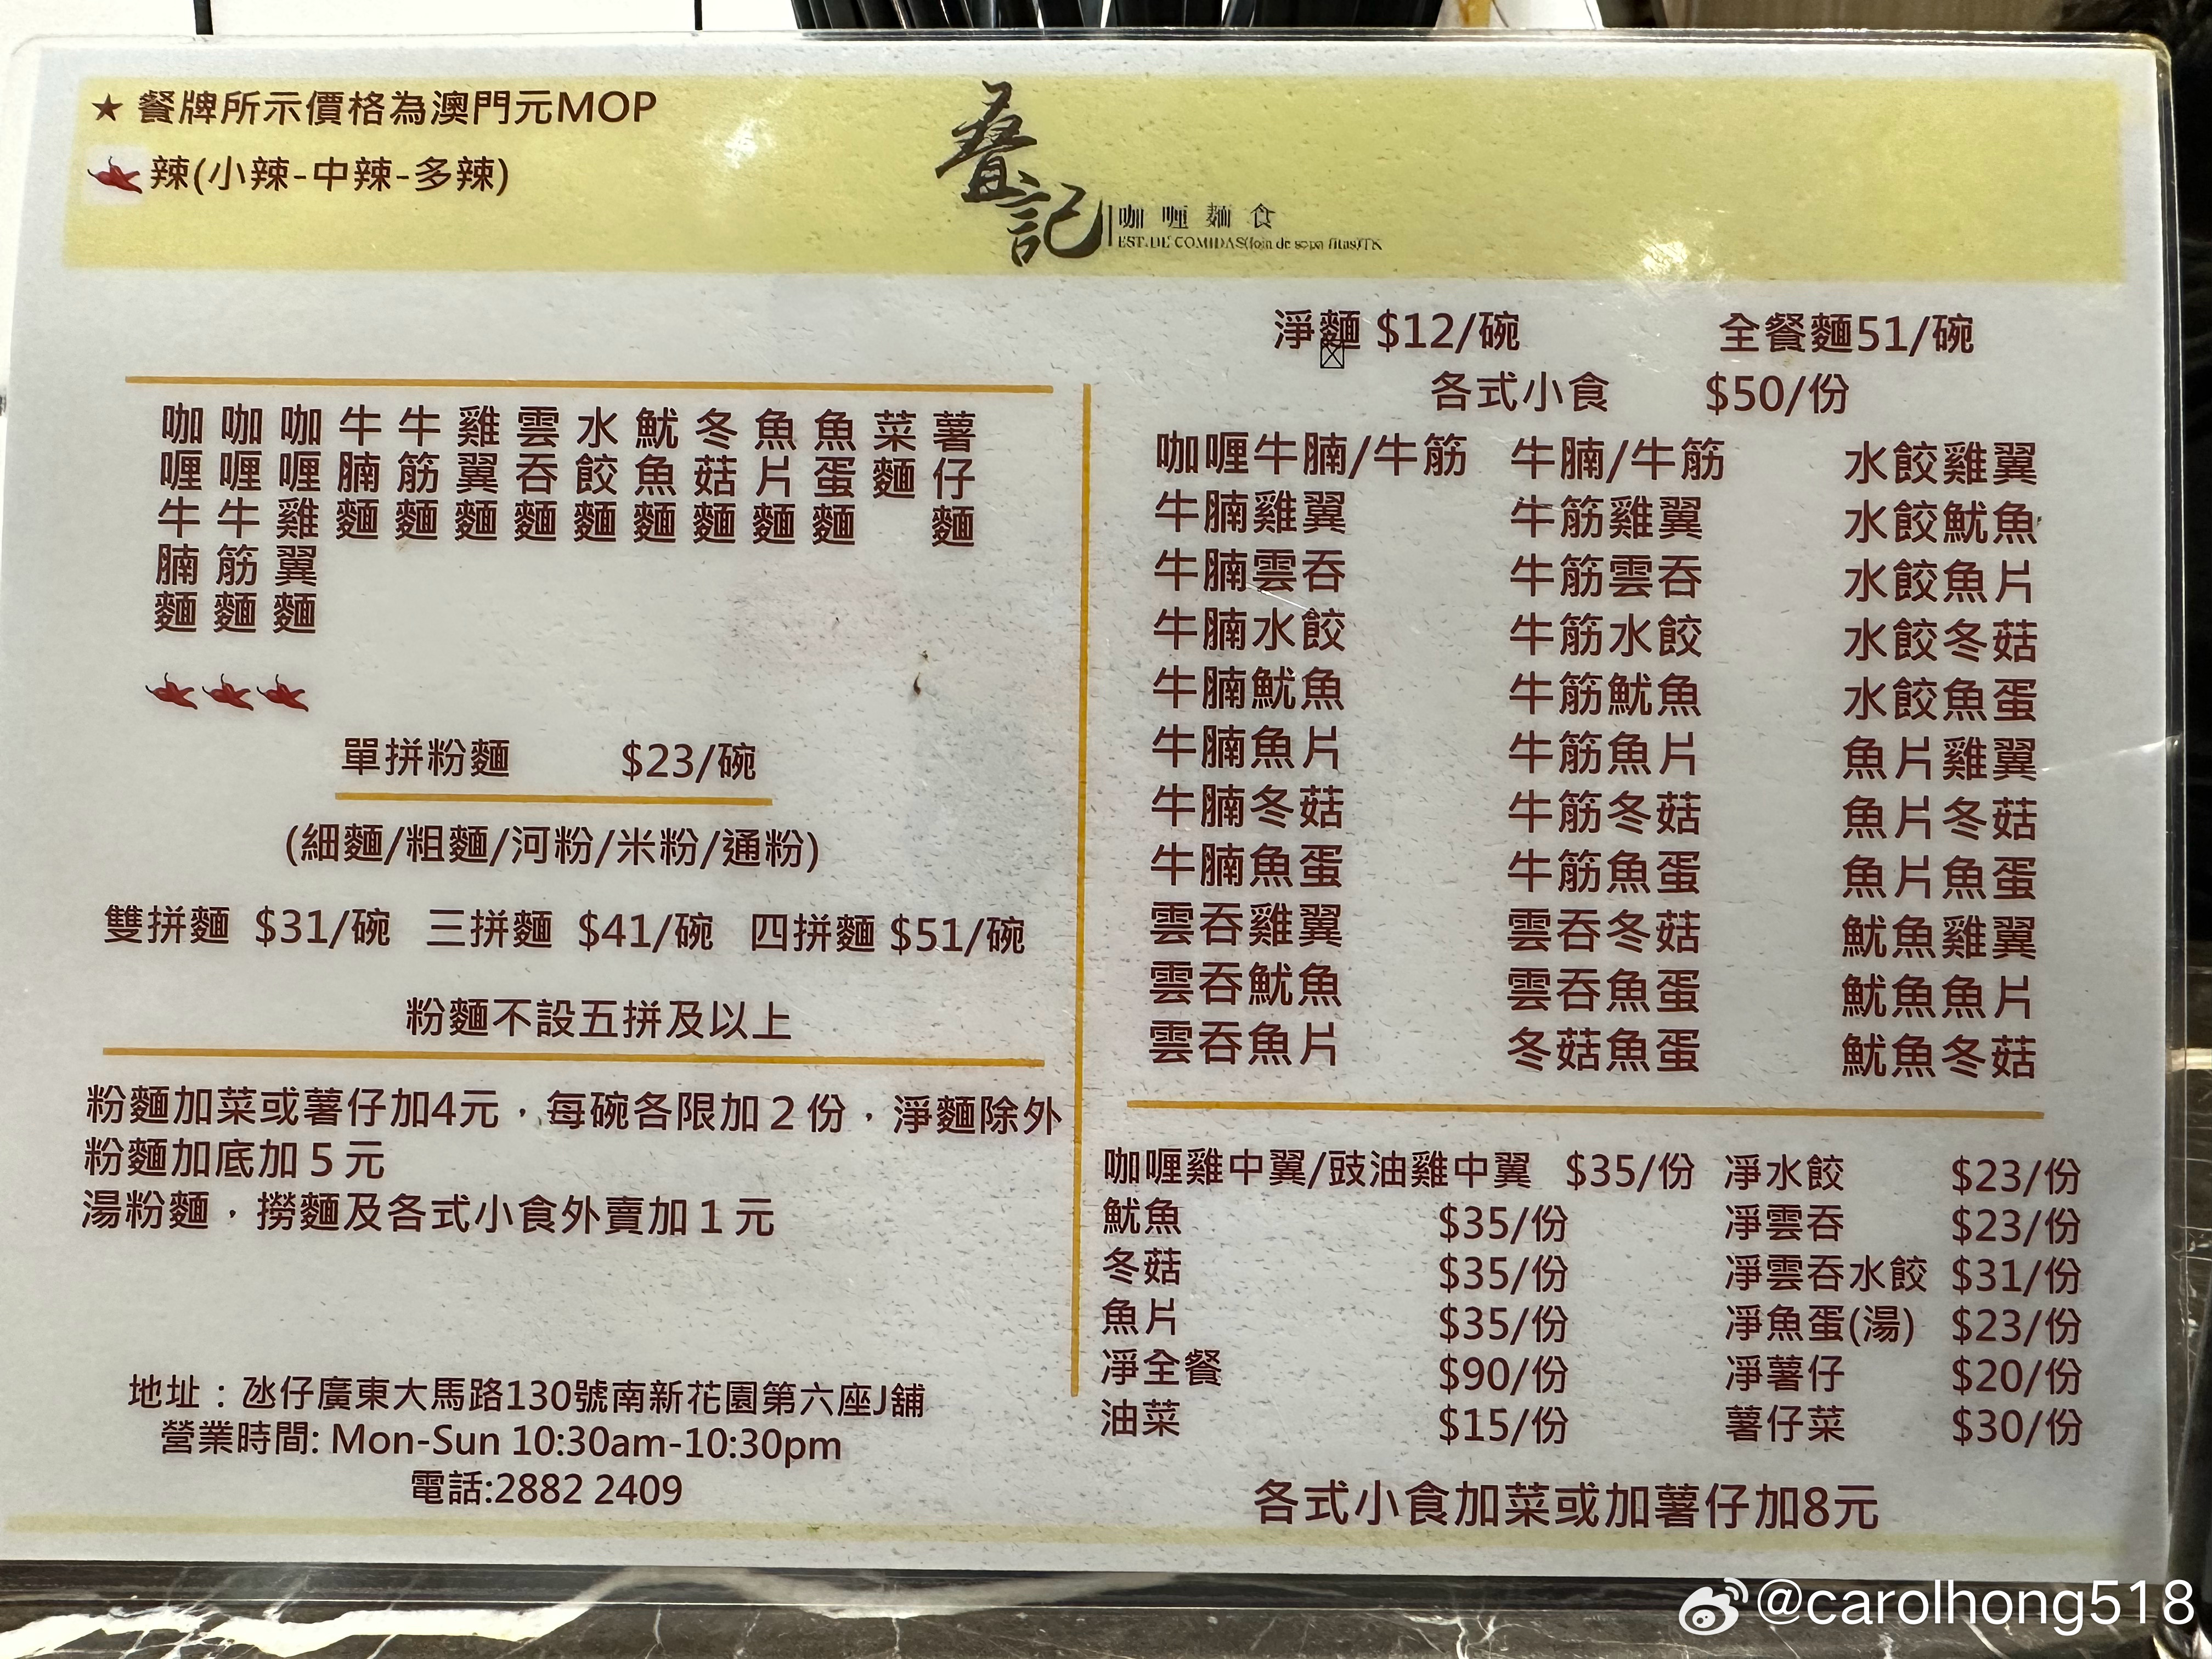 ★ 餐牌所示價格為澳門元MOP
辣(小辣-中辣-多辣)
記
咖喱麵食
EST.DE COMIDAS(loja de sopa fitas)TK
淨麵 $12/碗 全餐麵51/碗
各式小食 $50/份
咖喱牛腩麵
咖喱牛筋麵
咖喱雞翼麵
牛腩麵
牛筋麵
雞翼麵
雲吞麵
水餃麵
魷魚麵
冬菇麵
魚片麵
魚蛋麵
菜麵
薯仔麵
單拼粉麵 $23/碗
(細麵/粗麵/河粉/米粉/通粉)
雙拼麵 $31/碗 三拼麵 $41/碗 四拼麵 $51/碗
粉麵不設五拼及以上
粉麵加菜或薯仔加4元，每碗各限加2份，淨麵除外
粉麵加底加5元
湯粉麵，撈麵及各式小食外賣加1元
地址：氹仔廣東大馬路130號南新花園第六座J舖
營業時間: Mon-Sun 10:30am-10:30pm
電話:2882 2409
咖喱牛腩/牛筋 牛腩/牛筋 水餃雞翼
牛腩雞翼 牛筋雞翼 水餃魷魚
牛腩雲吞 牛筋雲吞 水餃魚片
牛腩水餃 牛筋水餃 水餃冬菇
牛腩魷魚 牛筋魷魚 水餃魚蛋
牛腩魚片 牛筋魚片 魚片雞翼
牛腩冬菇 牛筋冬菇 魚片冬菇
牛腩魚蛋 牛筋魚蛋 魚片魚蛋
雲吞雞翼 雲吞冬菇 魷魚雞翼
雲吞魷魚 雲吞魚蛋 魷魚魚片
雲吞魚片 冬菇魚蛋 魷魚冬菇
咖喱雞中翼/豉油雞中翼 $35/份 淨水餃 $23/份
魷魚 $35/份 淨雲吞 $23/份
冬菇 $35/份 淨雲吞水餃 $31/份
魚片 $35/份 淨魚蛋(湯) $23/份
淨全餐 $90/份 淨薯仔 $20/份
油菜 $15/份 薯仔菜 $30/份
各式小食加菜或加薯仔加8元
@carolhong518